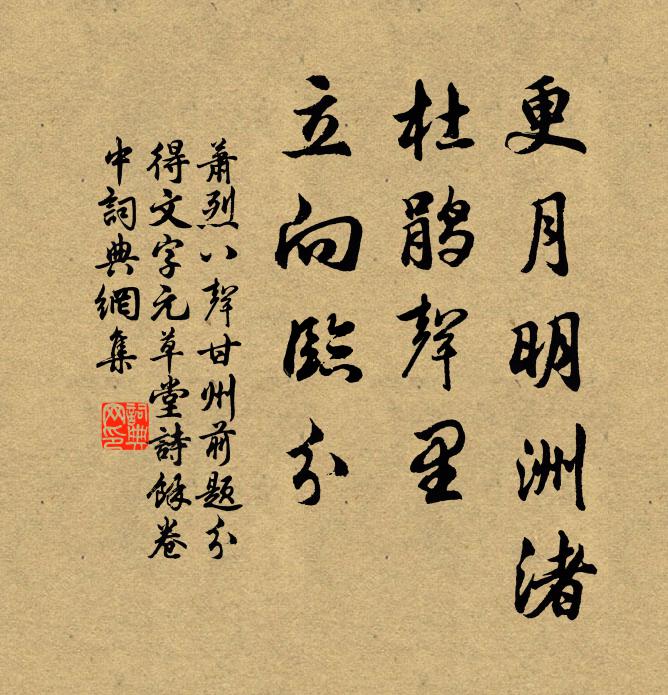 更月明洲渚
杜鹃聲里
立向臨分
蕭烈八聲甘州前題分
得文字元草堂詩餘卷
中詞典網集
詞典网印